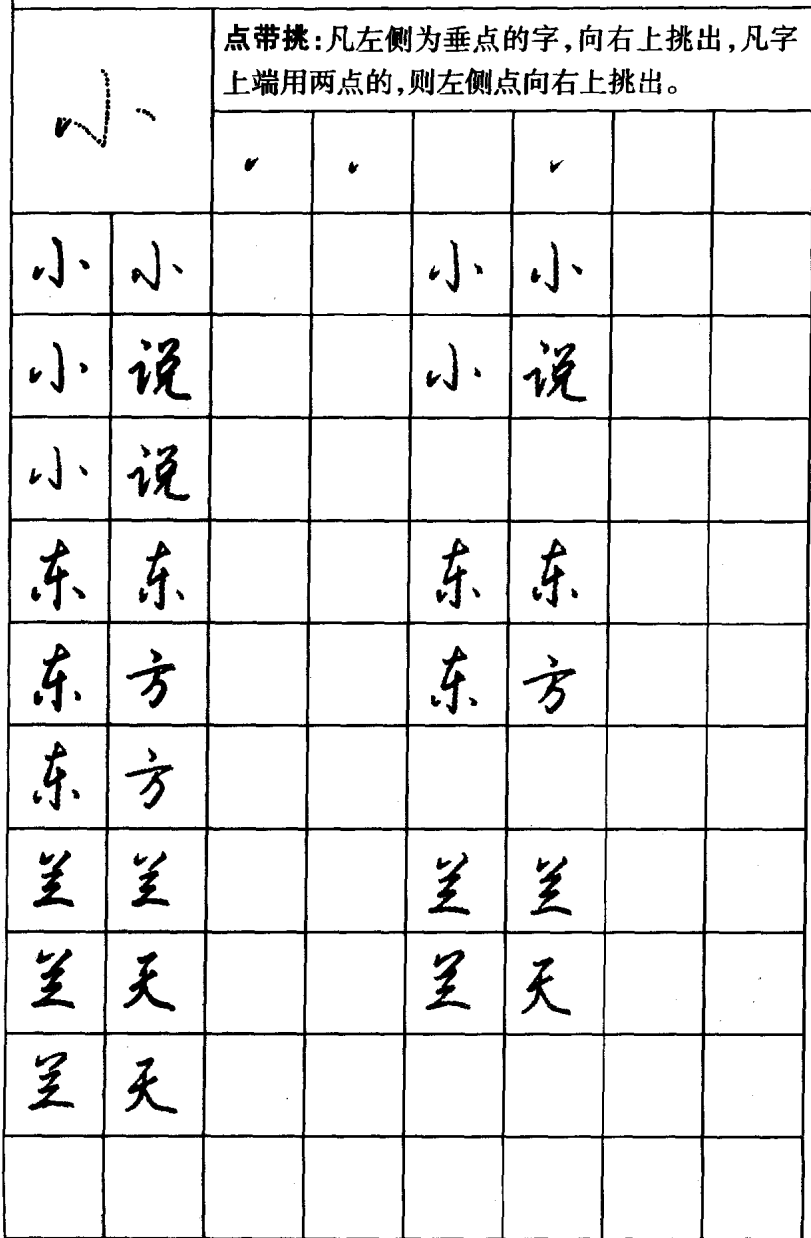 点带挑:凡左侧为垂点的字,向右上挑出,凡字
上端用两点的,则左侧点向右上挑出。
小
小 小 小 小
小 说 小 说
小 说
东 东 东 东
东 方 东 方
东 方
兰 兰 兰 兰
兰 天 兰 天
兰 天